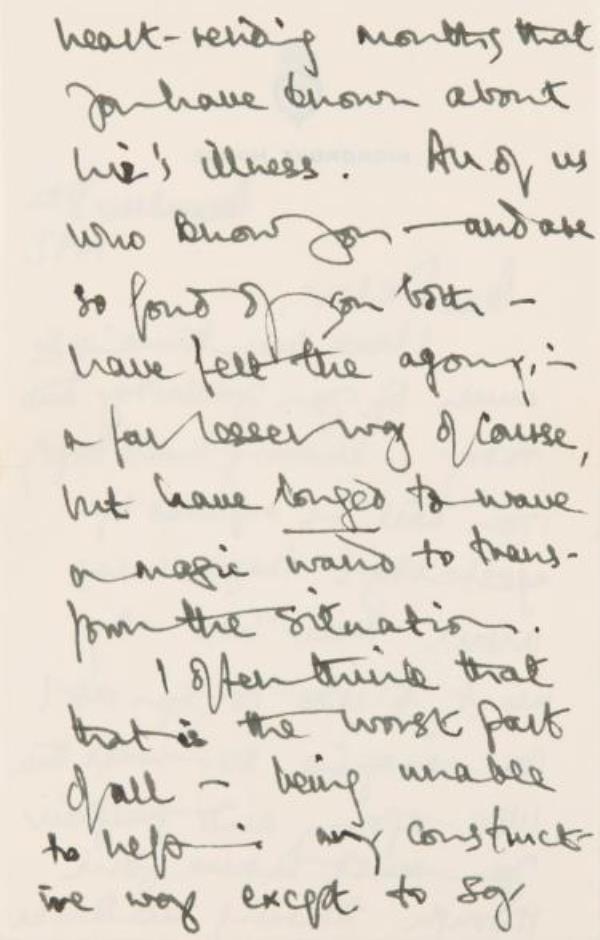 heart-rending months that
you have known about
his illness. All of us
who know you — and are
so fond of you both —
have felt the agony, in
a far lesser way of course,
but have longed to wave
a magic wand to trans-
form the situation.
I often think that
that is the worst part
of all — being unable
to help in any construct-
ive way except to say